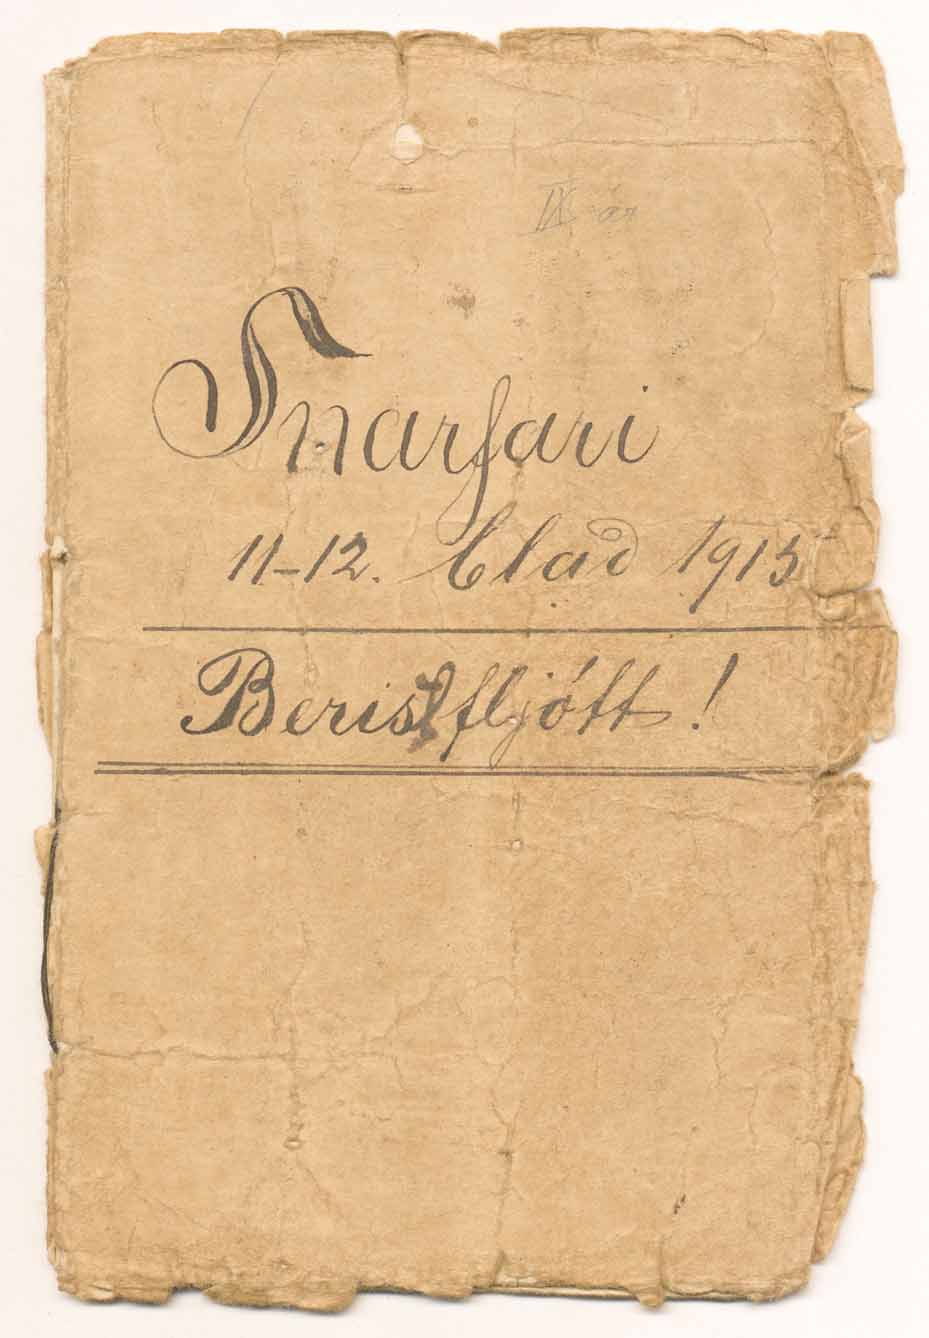 IX. ár
Snarfari
11-12. Blað 1915
Berist fljótt!